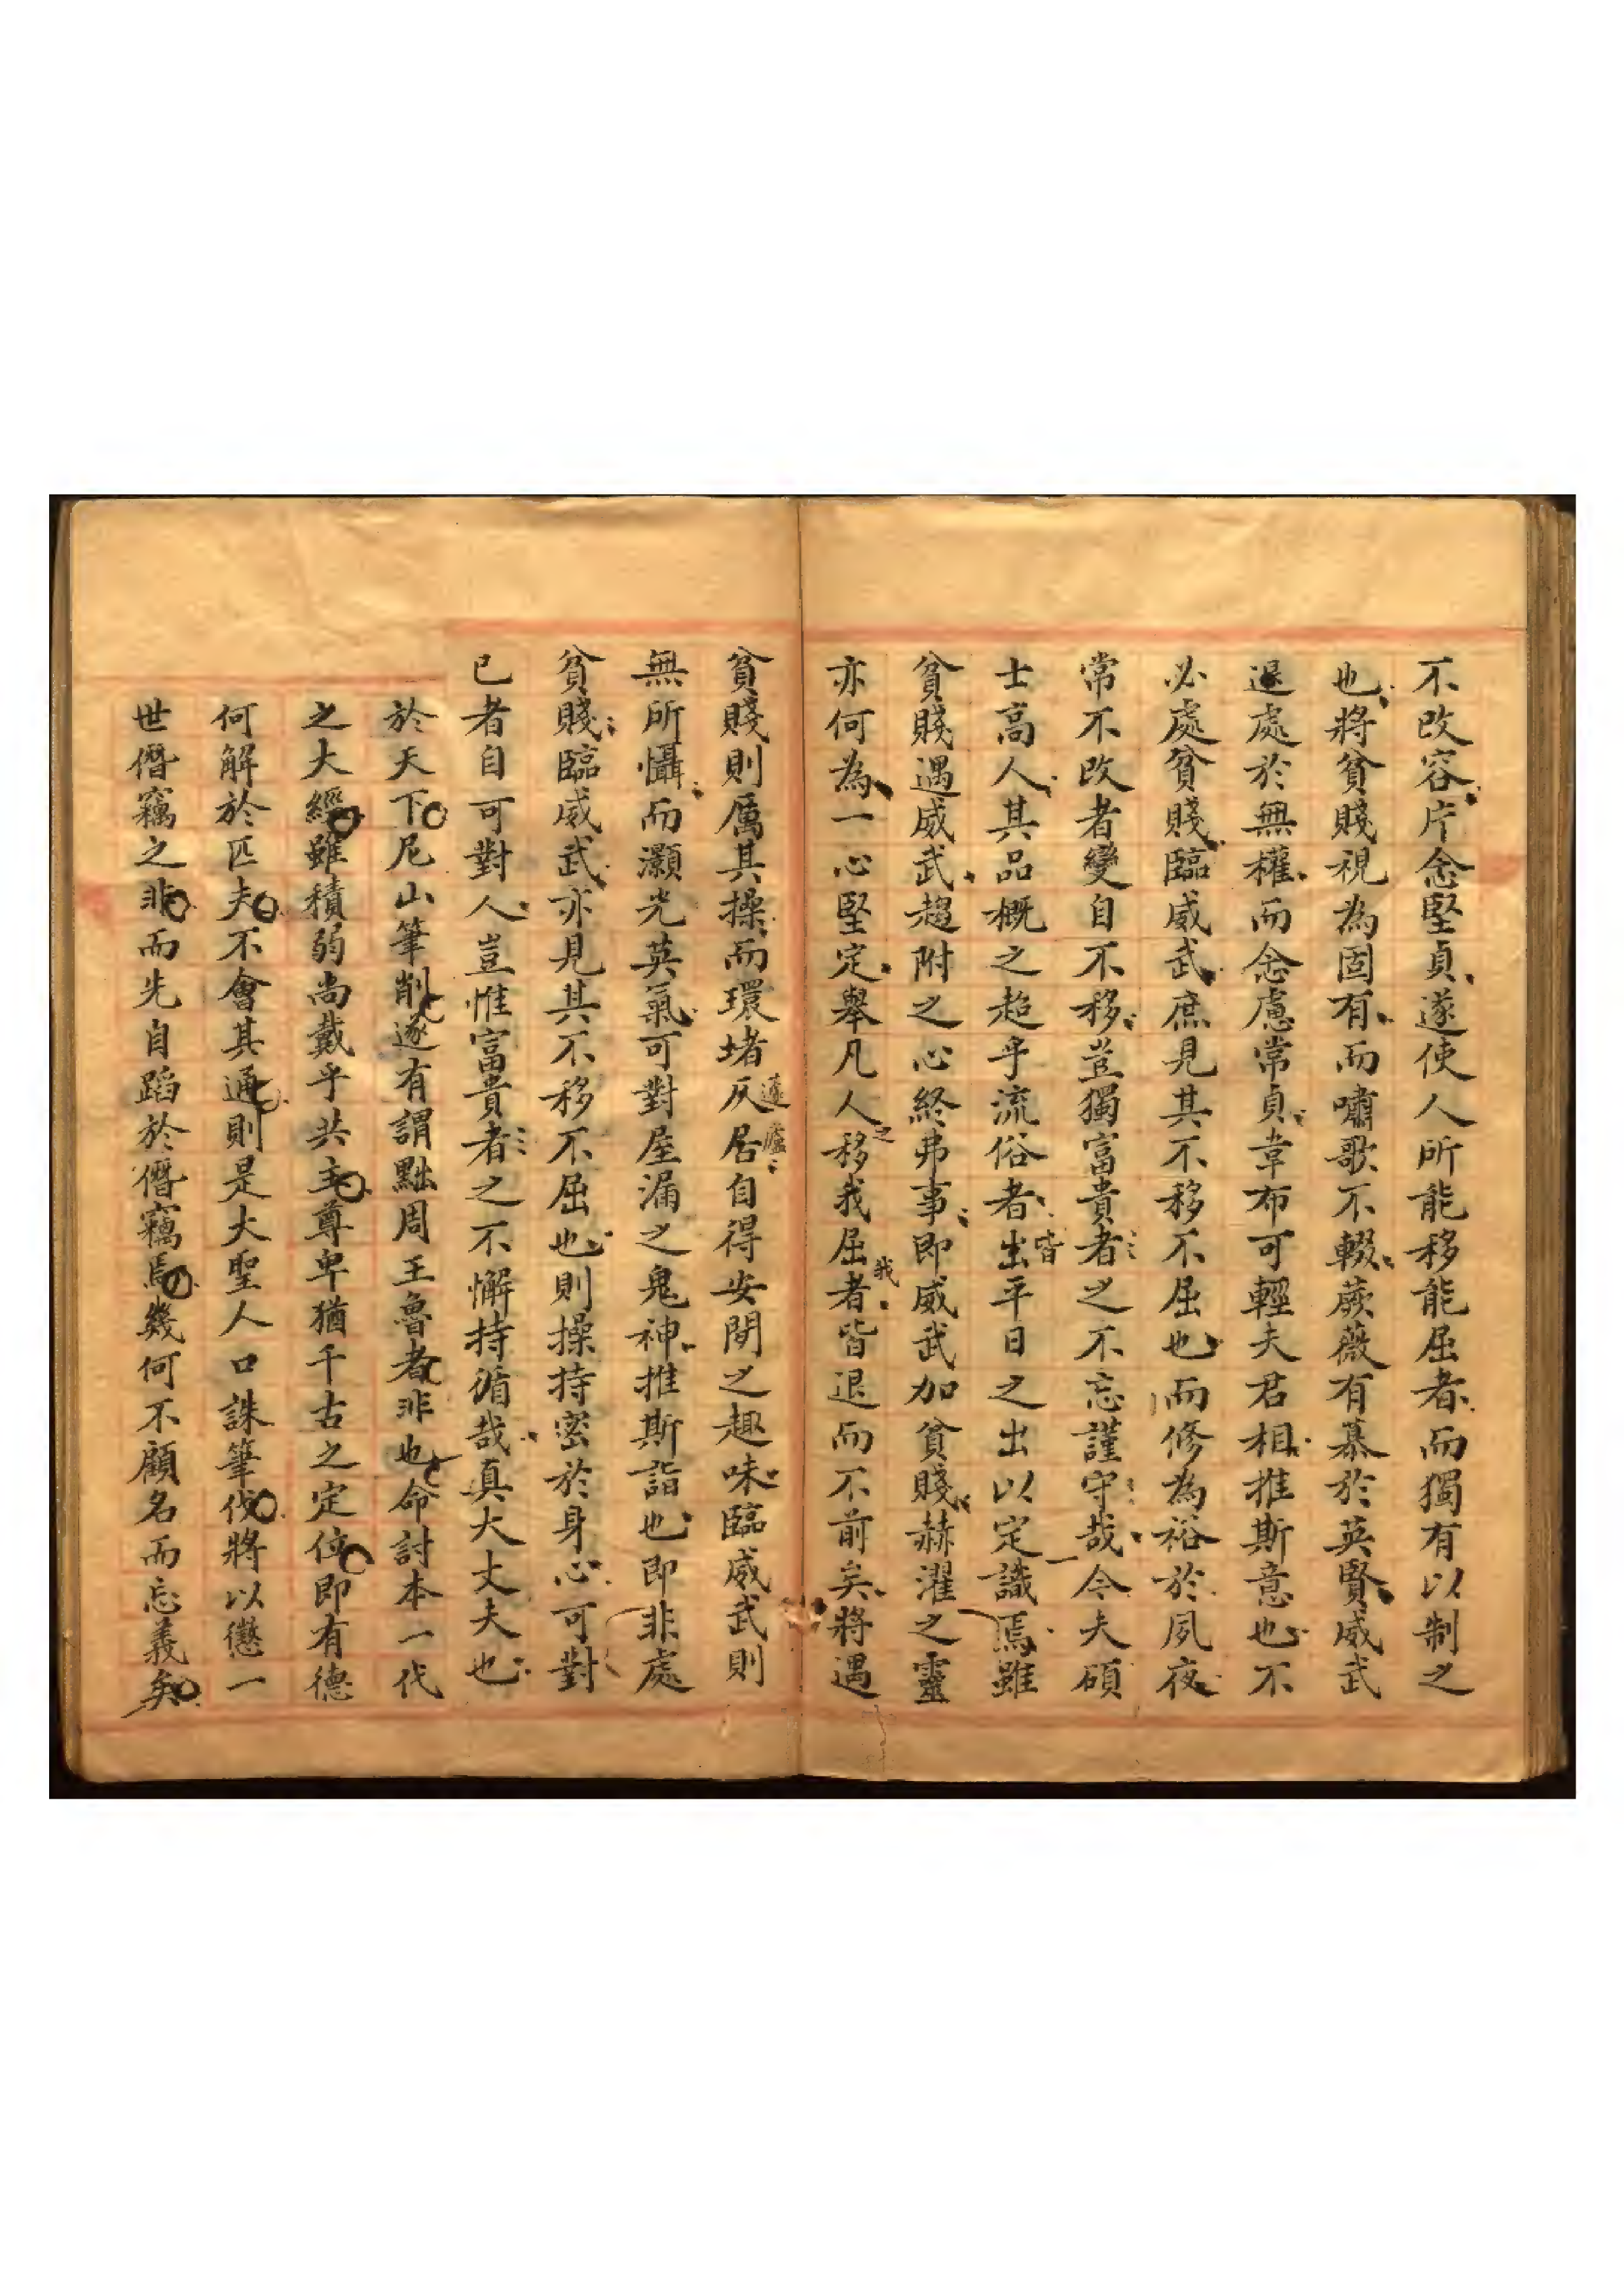 不改容片念堅貞遂使人所能移能屈者而獨有以制之
也將貧賤視為固有而嘯歌不輟蕨薇有慕於英賢威武
退處於無權而念慮常貞韋布可輕夫君相推斯意也不
必處貧賤臨威武庶見其不移不屈也而修為裕於夙夜
常不改者變自不移豈獨富貴者之不忘謹守哉今夫碩
士高人其品概之超乎流俗者皆出平日之出以定識焉雖
貧賤遇威武趨附之心終弗事即威武加貧賤赫濯之靈
亦何為一心堅定舉凡人之移我屈我者皆退而不前矣將遇
貧賤則厲其操而環堵仄居蘧廬自得安閒之趣味臨威武則
無所懾而灝光英氣可對屋漏之鬼神推斯詣也即非處
貧賤臨威武亦見其不移不屈也則操持密於身心可對
已者自可對人豈惟富貴者之不懈持循哉真大丈夫也
於天下尼山筆削遂有謂黜周王魯者非也命討本一代
之大經雖積弱尚戴乎共主尊卑猶千古之定位即有德
何解於匹夫不會其通則是大聖人口誅筆伐將以懲一
世僭竊之非而先自蹈於僭竊焉幾何不顧名而忘義矣